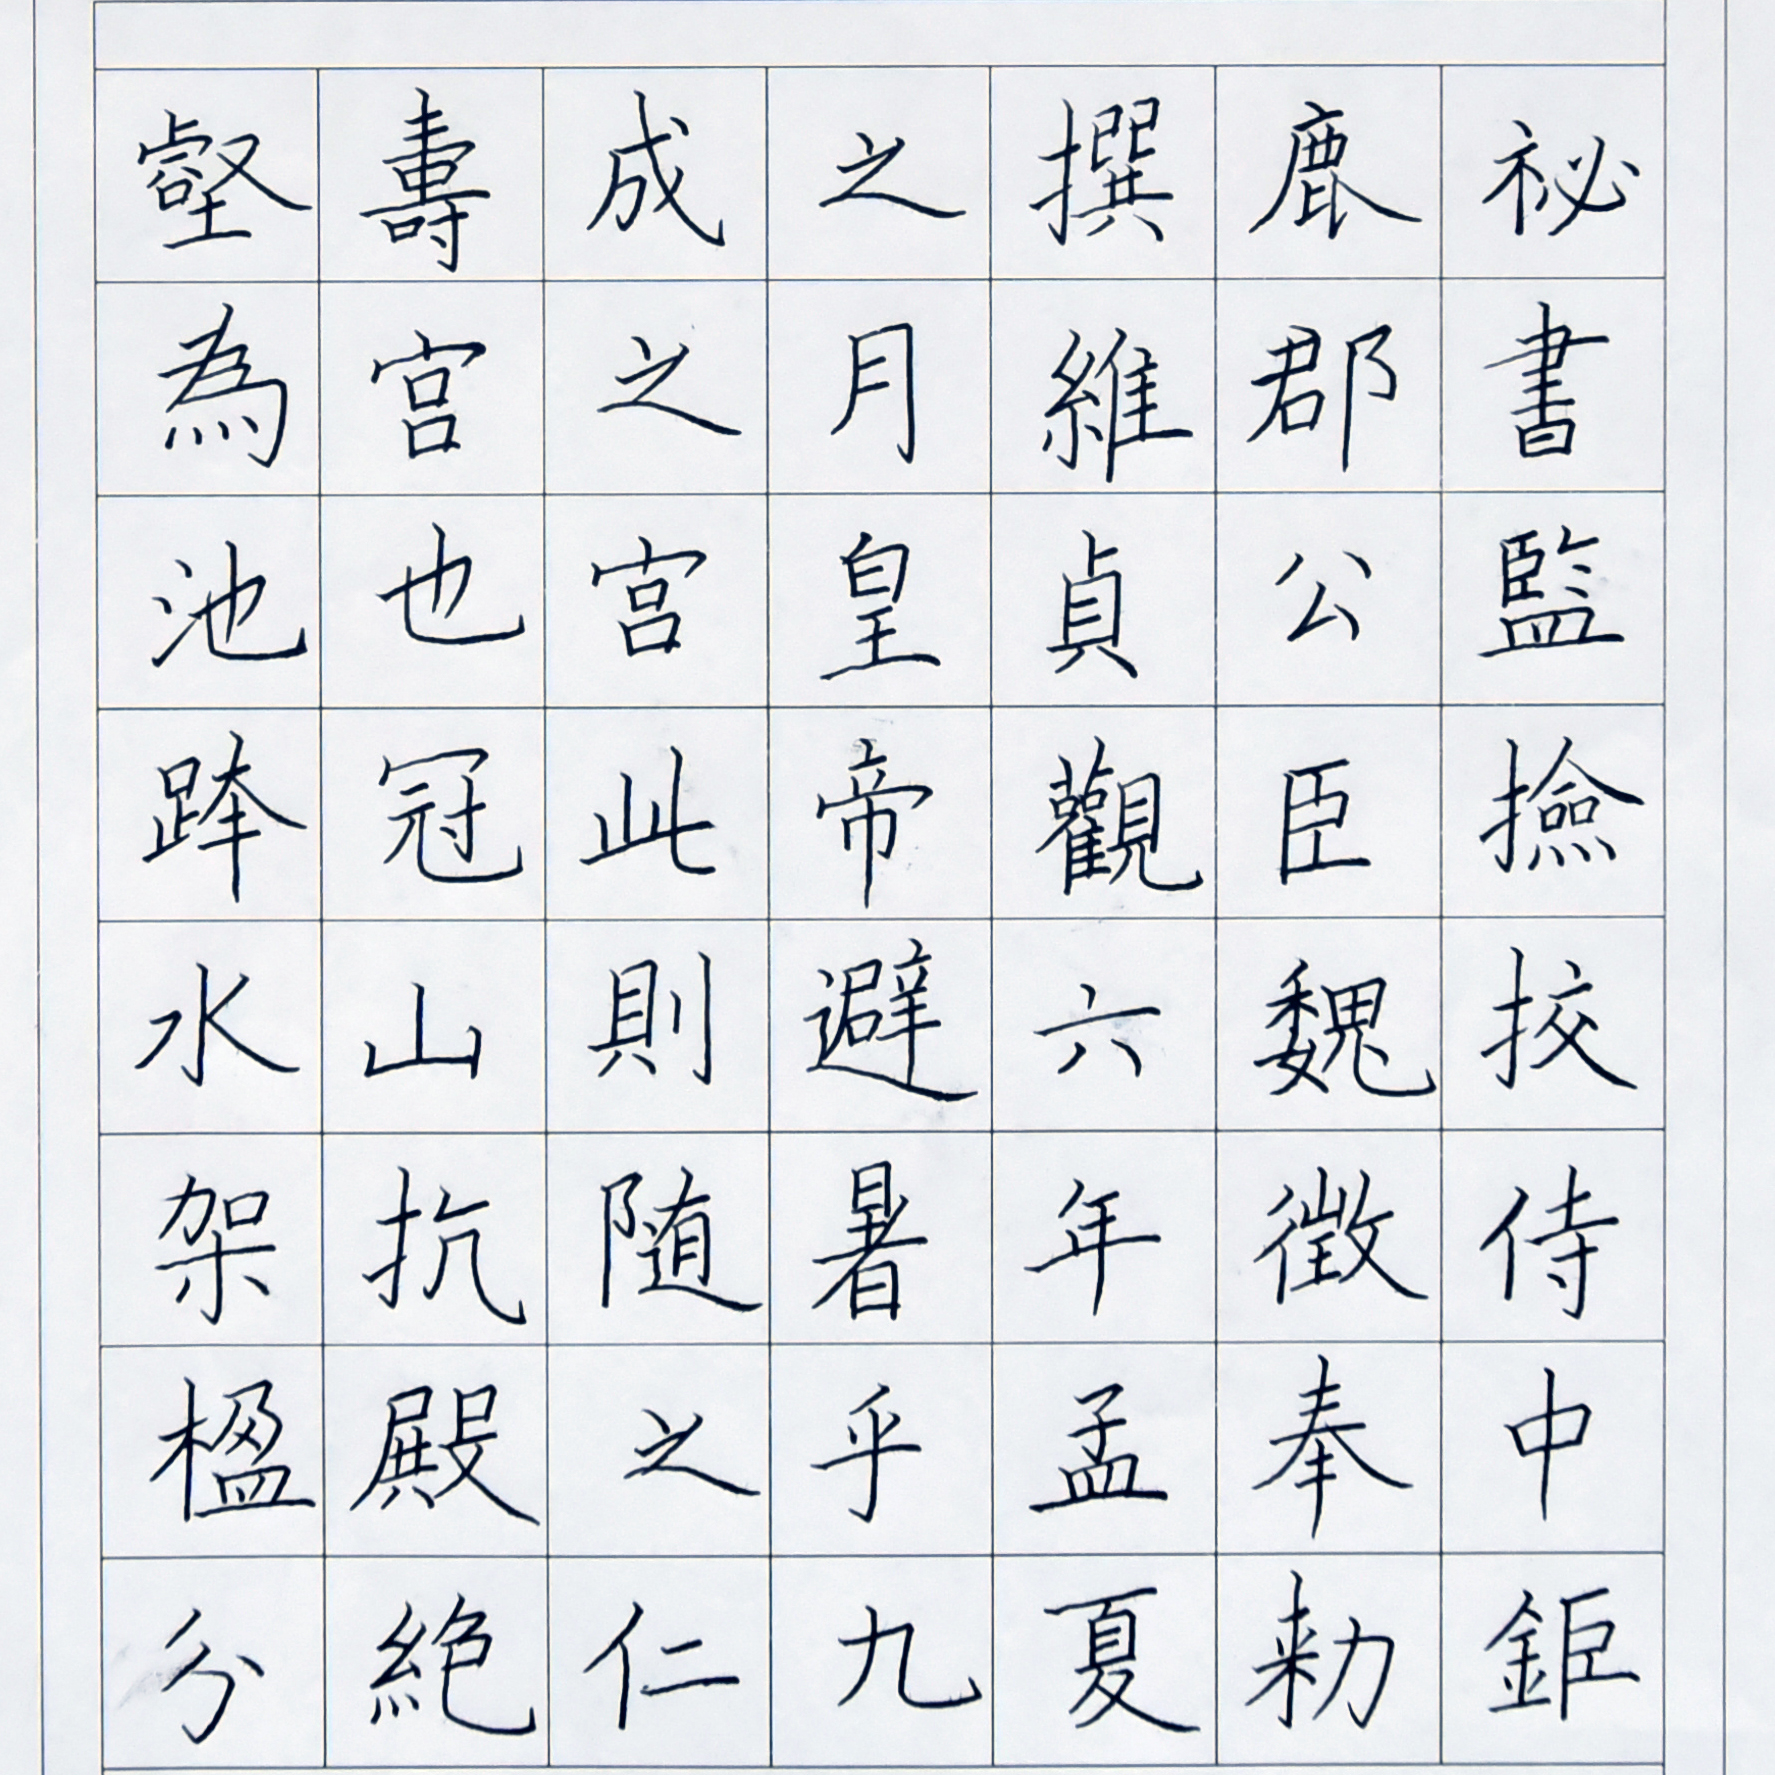 祕書監撿挍侍中鉅
鹿郡公臣魏徵奉勑
撰維貞觀六年孟夏
之月皇帝避暑乎九
成之宮此則随之仁
壽宮也冠山抗殿絶
壑為池跨水架楹分